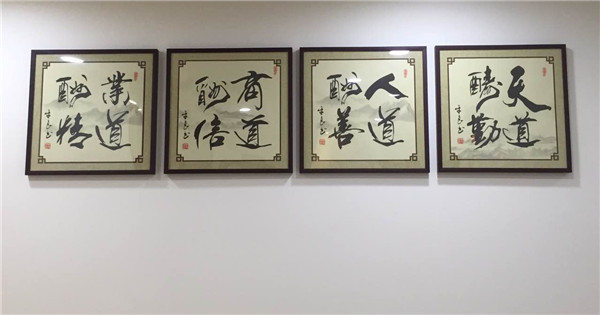 天道
酬勤
人道
酬善
商道
酬信
業道
酬精